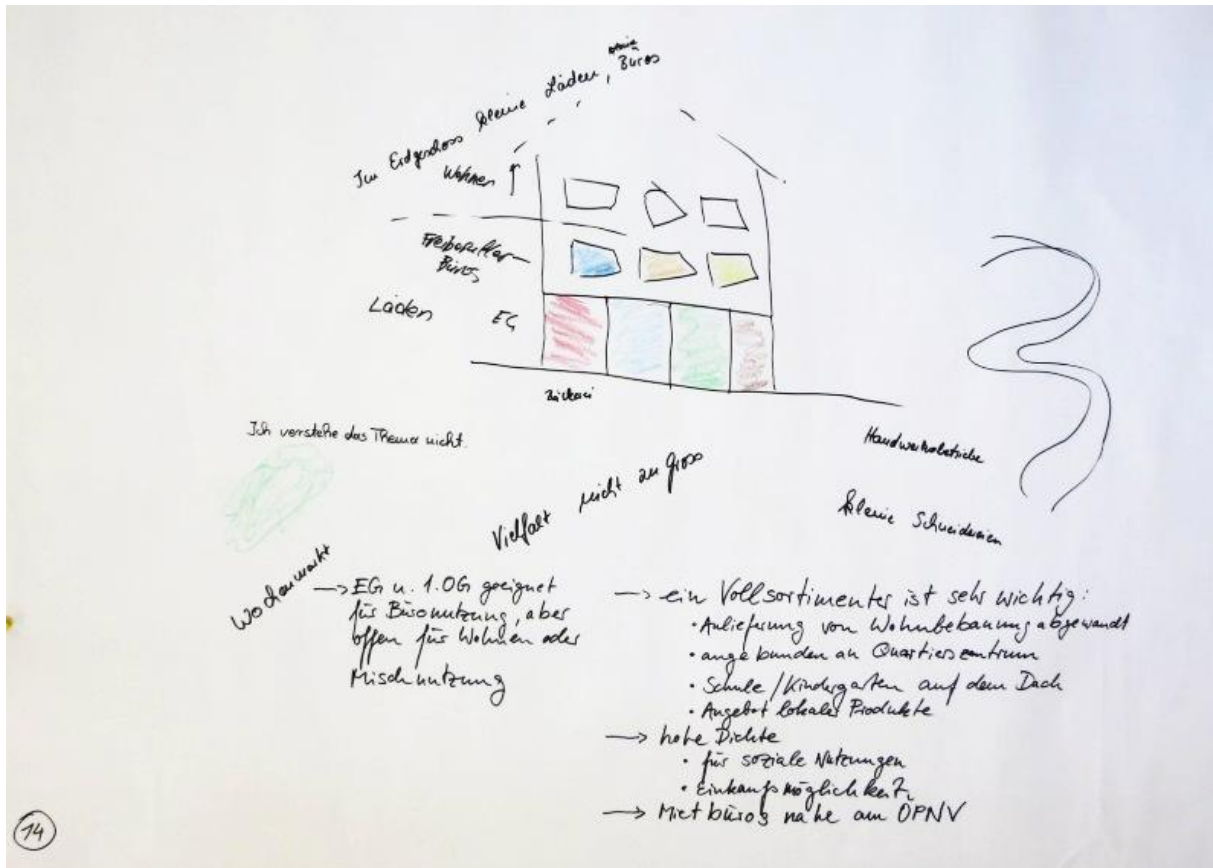 Im Erdgeschoss kleine Läden, Büros
Wohnen
Freiberufler
Büros
Läden EG
Bäckerei
Ich verstehe das Thema nicht.
Handwerksbetriebe
Vielfalt nicht zu gross
kleine Schneidereien
Wochenmarkt
→ EG u. 1.OG geeignet
für Büronutzung, aber
offen für Wohnen oder
Mischnutzung
→ ein Vollsortimenter ist sehr wichtig:
• Anlieferung von Wohnbebauung abgewandt
• angebunden an Quartierszentrum
• Schule/Kindergarten auf dem Dach
• Angebot lokaler Produkte
→ hohe Dichte
• für soziale Nutzungen
• Einkaufsmöglichkeit
→ Mietbüros nahe am ÖPNV
14